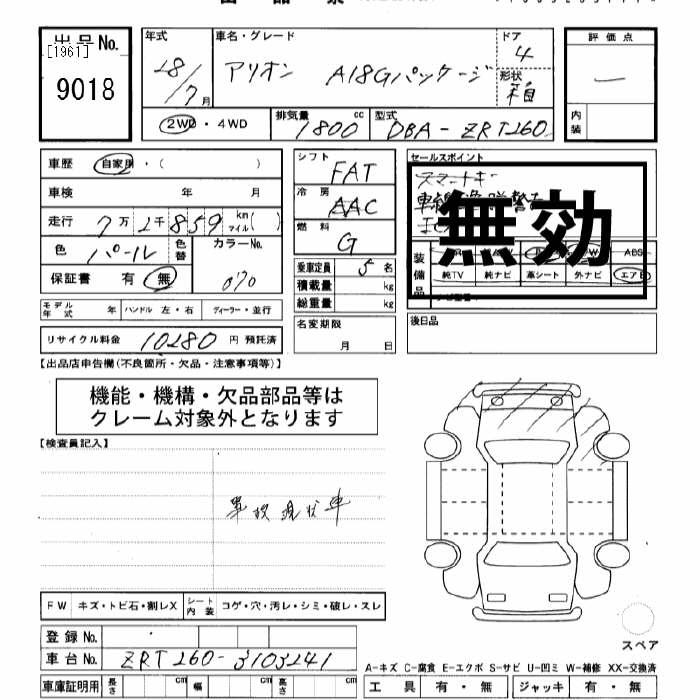 出品No.
[1961]
9018
年式
18/7月
車名・グレード
アリオン A18Gパッケージ
ドア
4
形状
箱
評価点
―
内装
2WD・4WD
排気量 1800 cc
型式 DBA-ZRT260
車歴 自家用・( )
車検 年 月
走行 7万2千859 km マイル( )
色 パール
色替
カラーNo.
070
保証書 有・無
モデル年式 年
ハンドル 左・右
ディーラー・並行
リサイクル料金 10280 円 預託済
シフト FAT
冷房 AAC
燃料 G
乗車定員 5 名
積載量 kg
総重量 kg
名変期限
月 日
セールスポイント
スマートキー
無効
装備品
ABS
純TV 純ナビ 革シート 外ナビ エアB
後日品
【出品店申告欄(不良箇所・欠品・注意事項等)】
機能・機構・欠品部品等は
クレーム対象外となります
【検査員記入】
事故現状車
FW キズ・トビ石・割レX
シート内装 コゲ・穴・汚レ・シミ・破レ・スレ
登録No.
車台No. ZRT260-3103241
車庫証明用 長さ cm 幅 cm 高さ cm
スペア
A-キズ C-腐食 E-エクボ S-サビ U-凹ミ W-補修 XX-交換済
工具 有・無 ジャッキ 有・無